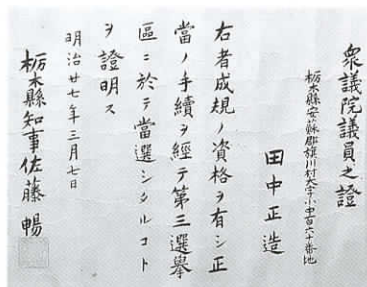 衆議院議員之證
栃木縣安蘇郡旗川村大字小中百六十番地
田中正造
右者成規ノ資格ヲ有シ正
當ノ手續ヲ經テ第三選擧
區ニ於テ當選シタルコト
ヲ證明ス
明治廿七年三月七日
栃木縣知事佐藤暢